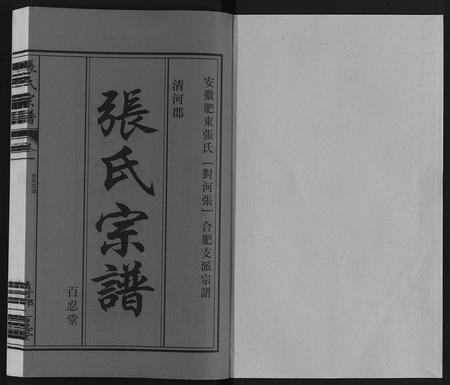 安徽肥東張氏［對河張］合肥支派宗譜
清河郡
張氏宗譜
百忍堂
張氏宗譜